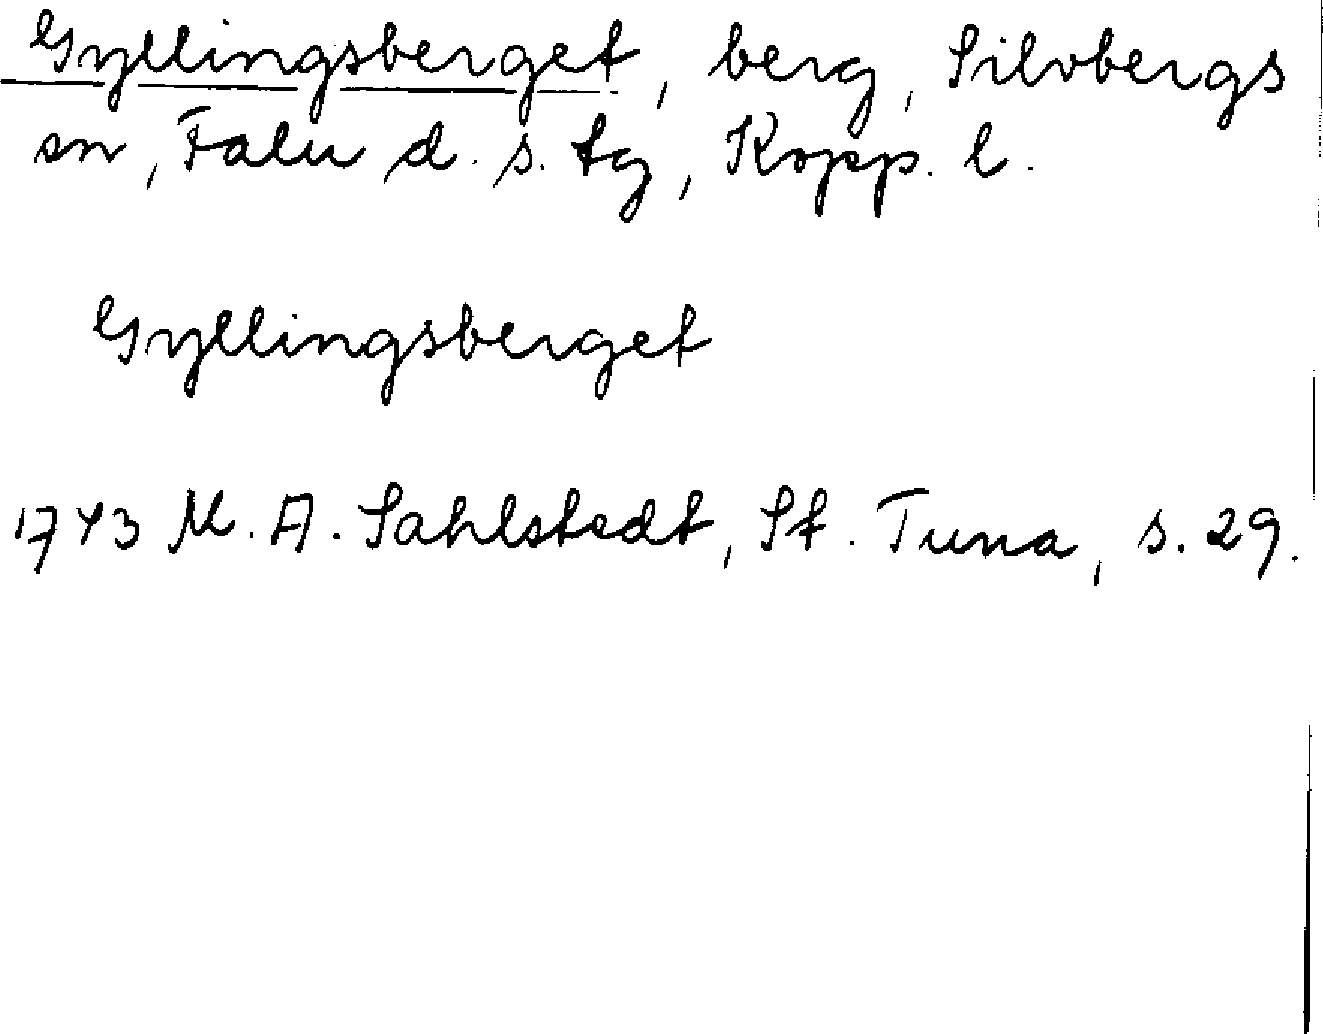 Gyllingsberget, berg, Silvbergs
sn, Falu d. s. tg, Kopp. l.
Gyllingsberget
1743 M. A. Sahlstedt, St. Tuna, s. 29.